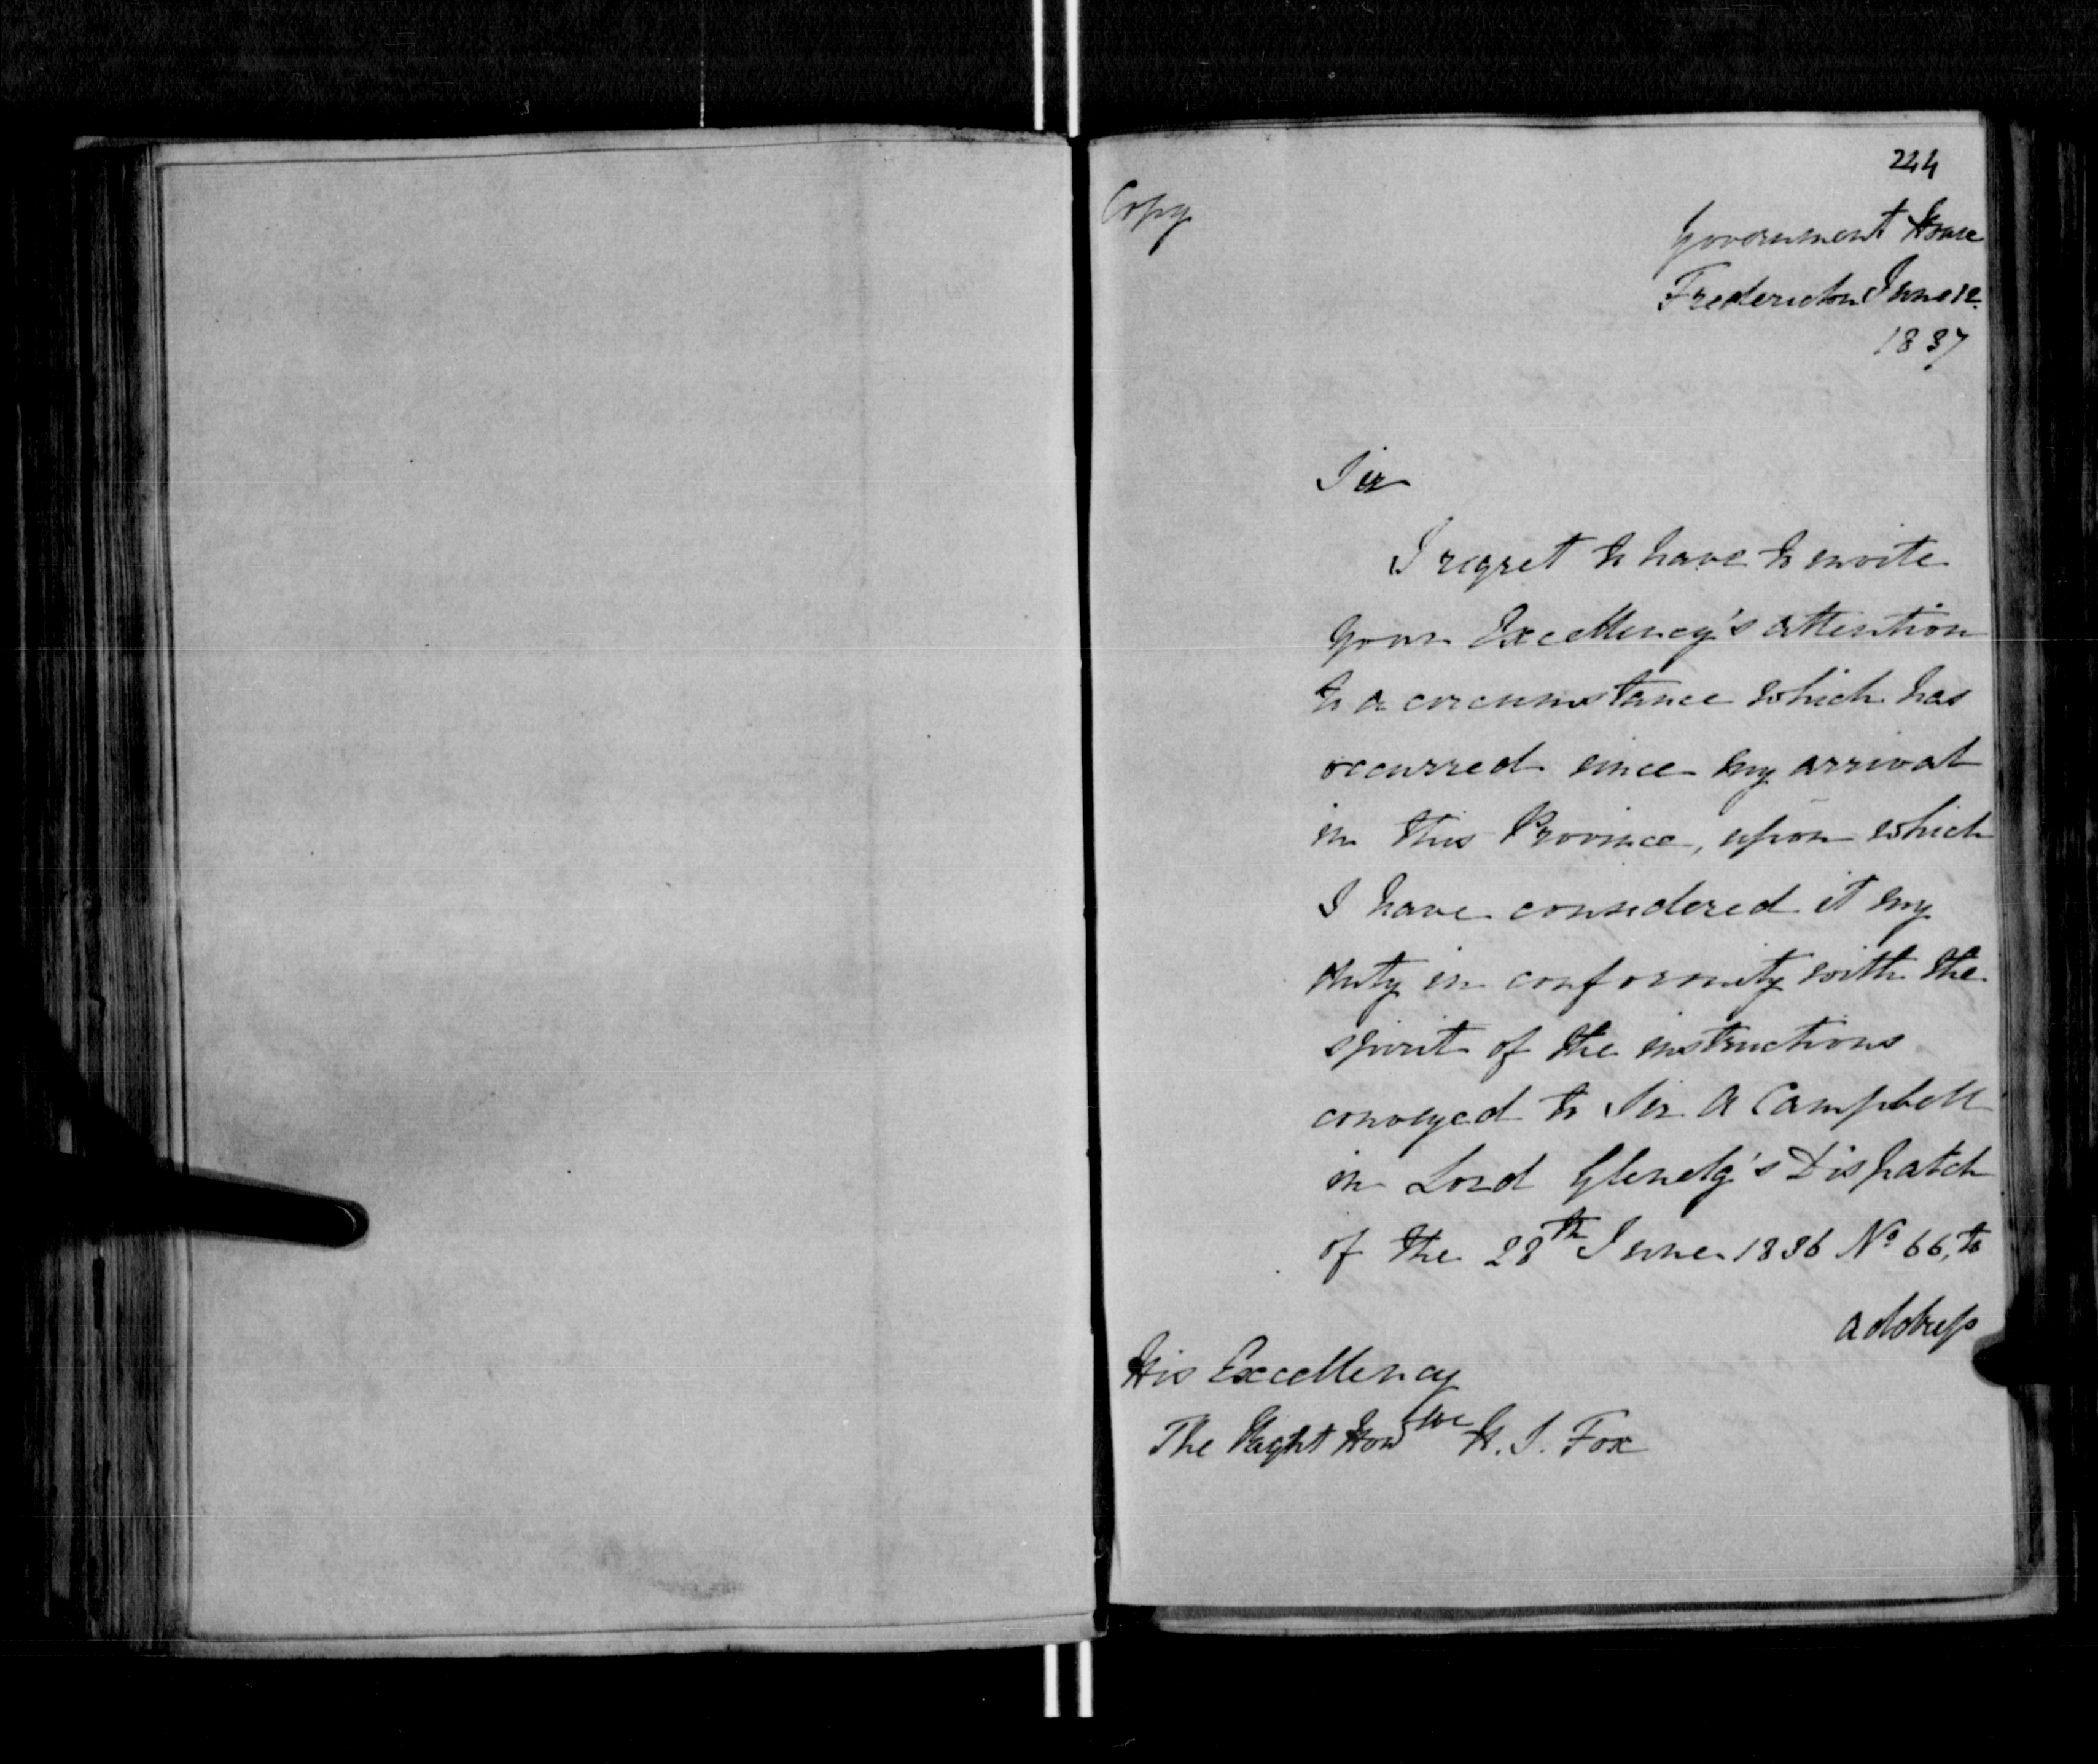 244
Copy
Government House
Fredericton June 12.
1837
Sir
I regret to have to invite
your Excellency's attention
to a circumstance which has
occurred since my arrival
in this Province, upon which
I have considered it my
duty in conformity with the
spirit of the instructions
conveyed to Sir A Campbell
in Lord Glenelg's Dispatch
of the 28th June 1836 No 66, to
address
His Excellency
The Right Honble H. S. Fox